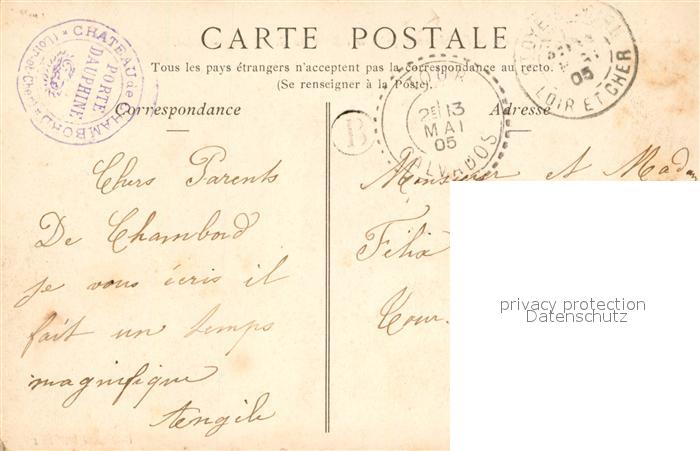 CARTE POSTALE
Tous les pays étrangers n'acceptent pas la correspondance au recto.
(Se renseigner à la Poste).
CHATEAU de CHAMBORD
(Loir-et-Cher)
PORTE
DAUPHINE
Correspondance
Adresse
B
13
MAI
05
CALVADOS
05
LOIR ET CHER
Chers Parents
De Chambord
je vous écris il
fait un temps
magnifique
Monsieur et Madam
Félix
Tour
privacy protection
Datenschutz